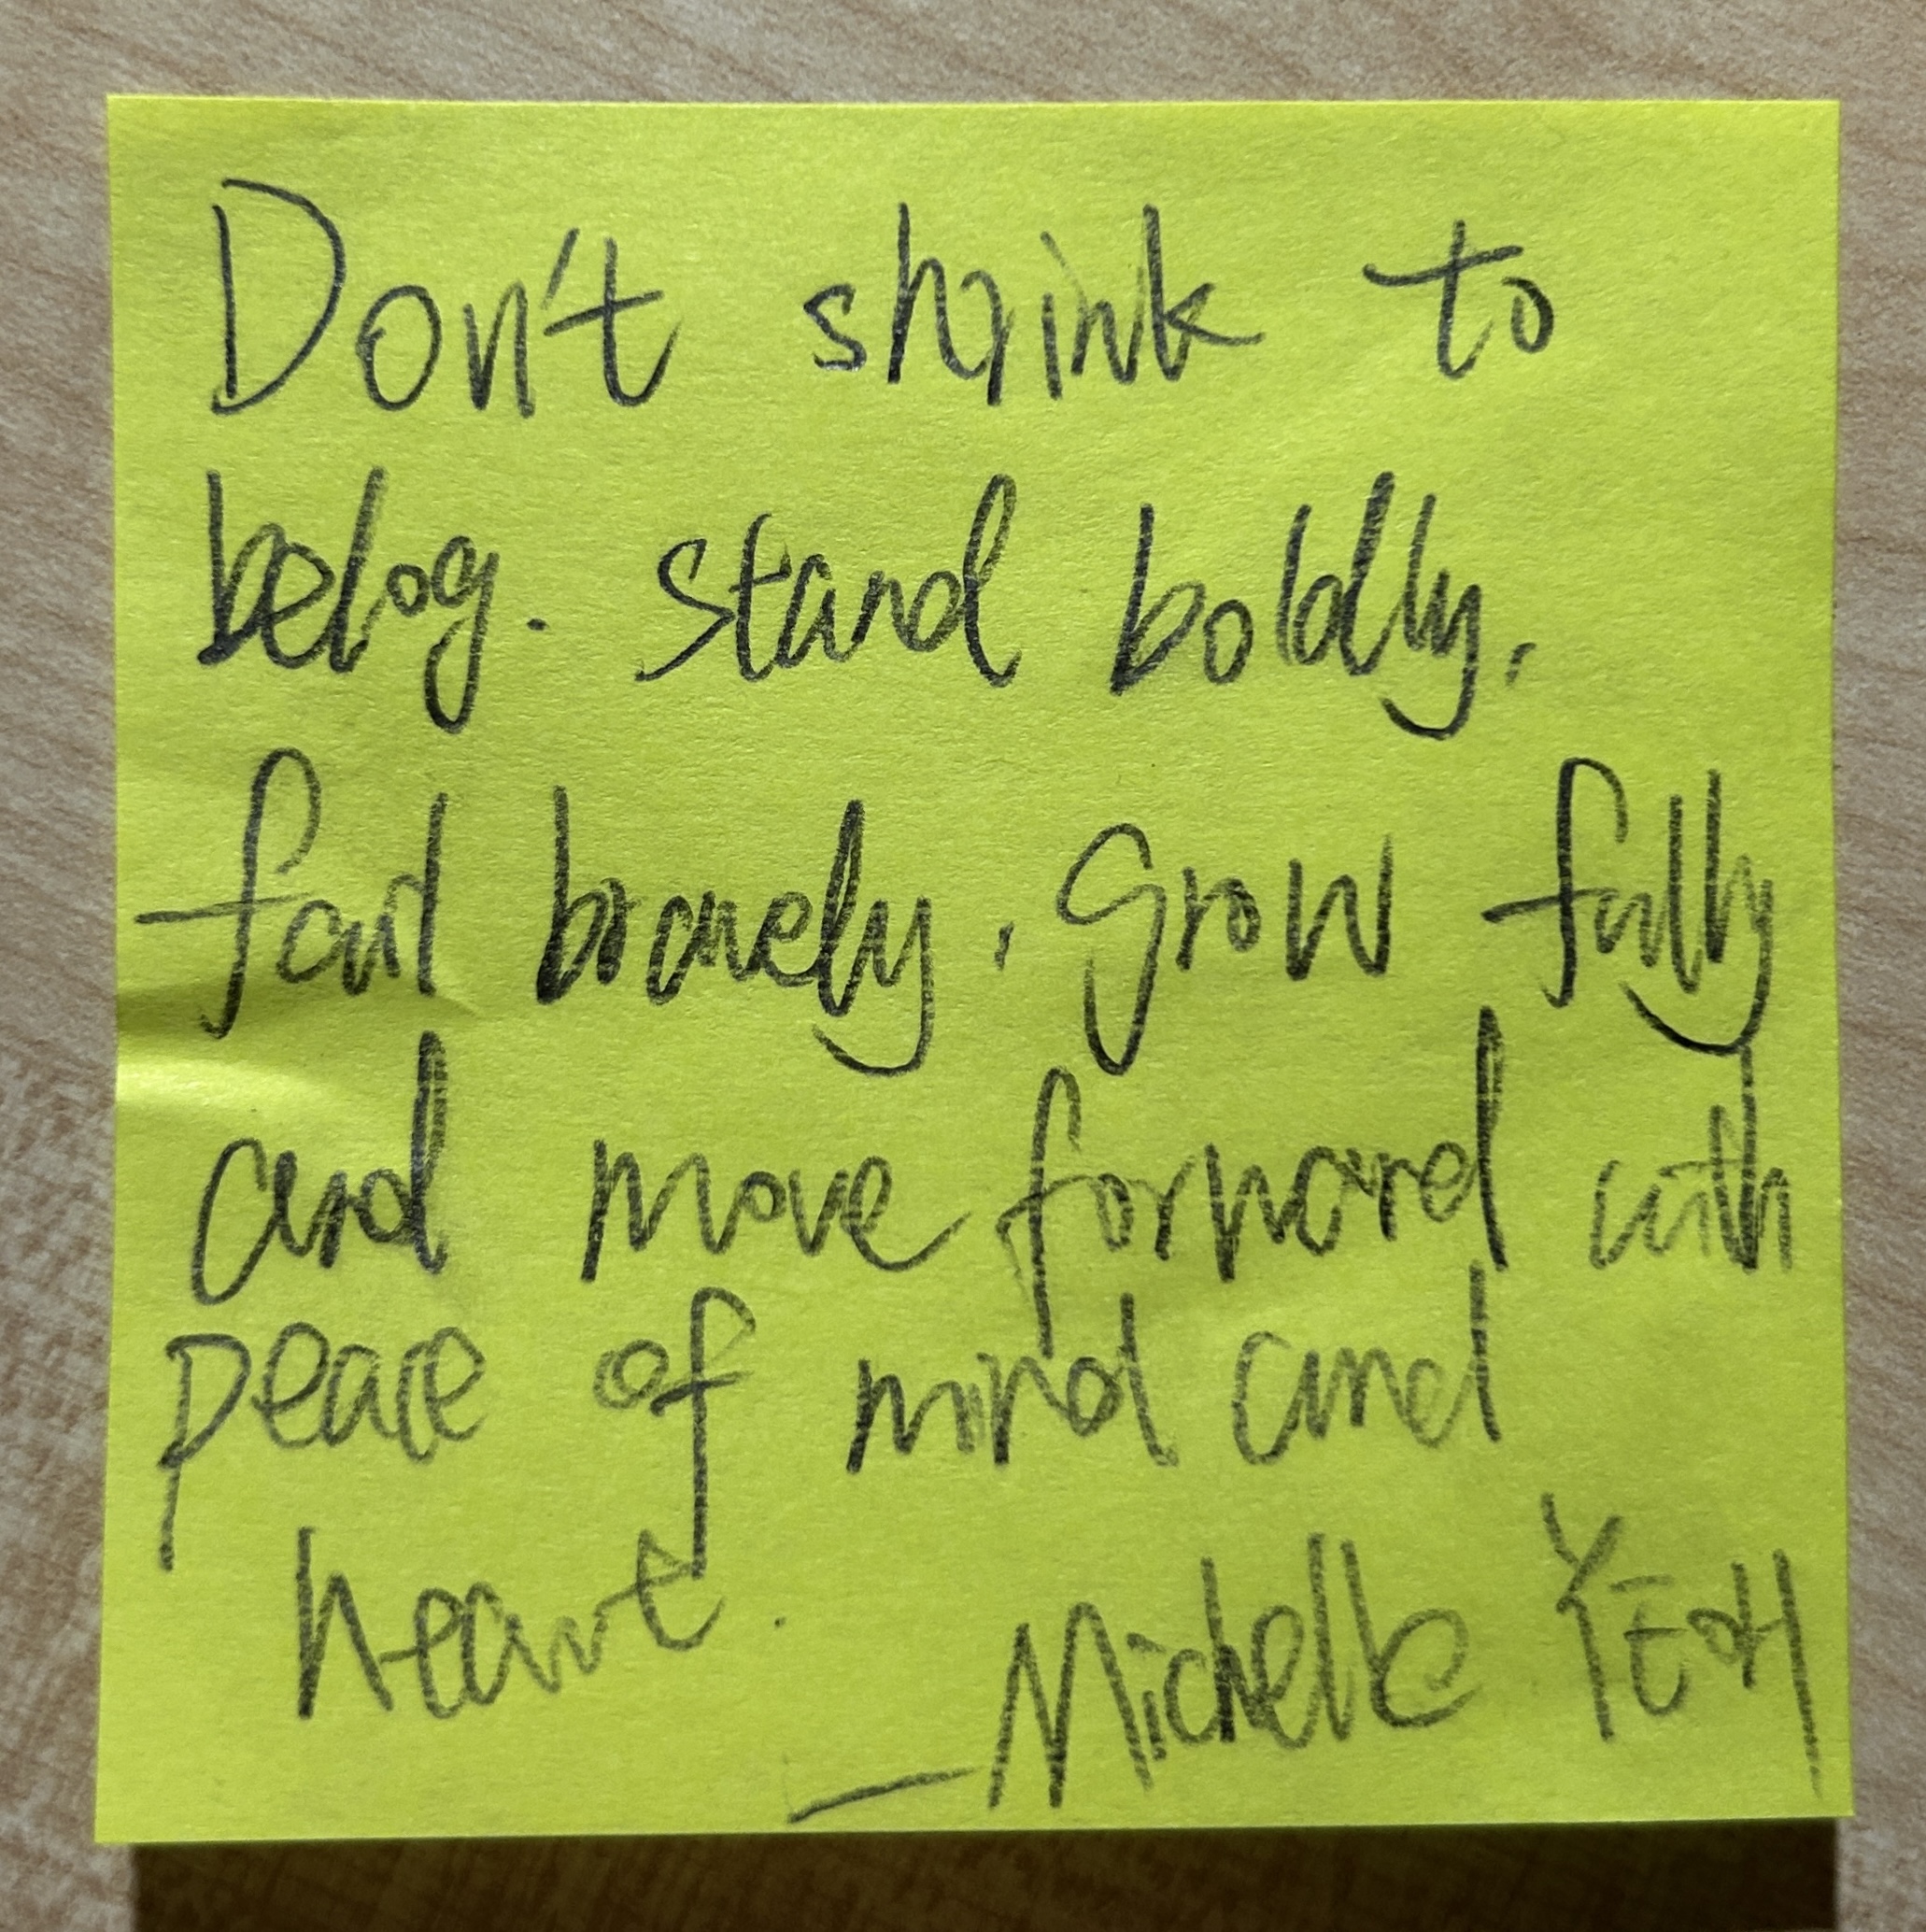 Don't shrink to
belog. Stand boldly,
fail bravely, Grow fully
and move forward with
peace of mind and
heart.
—Michelle YEOH